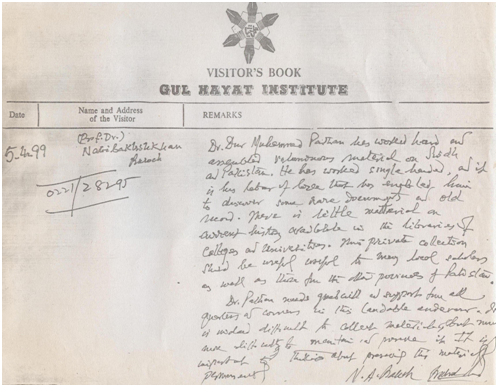 VISITOR'S BOOK
GUL HAYAT INSTITUTE
Date
Name and Address
of the Visitor
REMARKS
5.4.99
(Prof. Dr.)
Nabi Bakhsh Khan
Baloch
0221/28295
Dr. Dur Muhammad Pathan has worked hard and
assembled voluminous material on Sindh
and Pakistan. He has worked single handed, and it
is his labour of love that has enabled him
to discover some rare documents and old
record. There is little material on
current history available in the libraries of
Colleges and Universities. This private collection
should be very useful to many local scholars
as well as those from the other provinces of Pakistan.
Dr. Pathan needs goodwill and support from all
quarters and corners in this laudable endeavour. It
is indeed difficult to collect material, but
more difficult to maintain and preserve it. It is
important to about preserving this material
permanently
N. A. Baloch